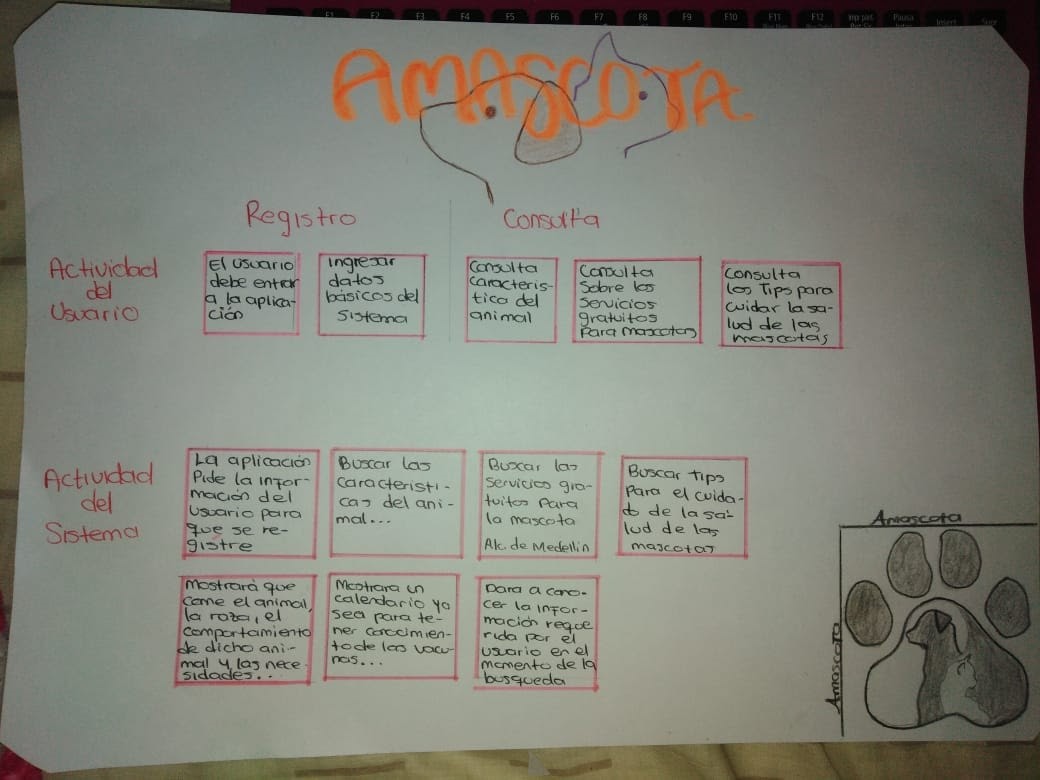 F1 F2 F3 F4 F5 F6 F7 F8 F9 F10 F11 F12 Insert
AMASCOTA
Registro
Consulta
Actividad
del
Usuario
El usuario
debe entrar
a la aplica-
ción
Ingresar
datos
básicos del
Sistema
Consulta
caracteris-
tica del
animal
Consulta
Sobre los
servicios
gratuitos
Para mascotas
Consulta
los Tips para
cuidar la sa-
lud de las
mascotas
Actividad
del
Sistema
La aplicación
Pide la infor-
mación del
usuario para
que se re-
gistre
Buscar las
caracteristi-
cas del ani-
mal...
Buscar los
servicios gra-
tuitos para
la mascota
Alc. de Medellin
Buscar tips
Para el cuida-
do de la sa-
lud de las
mascotas
Mostrará que
come el animal,
la raza, el
comportamiento
de dicho ani-
mal y las nece-
sidades...
Mostrara un
calendario ya
sea para te-
ner conocimien-
to de las vacu-
nas...
Dara a cono-
cer la infor-
mación reque
rida por el
usuario en el
momento de la
busqueda
Amascota
Amascota